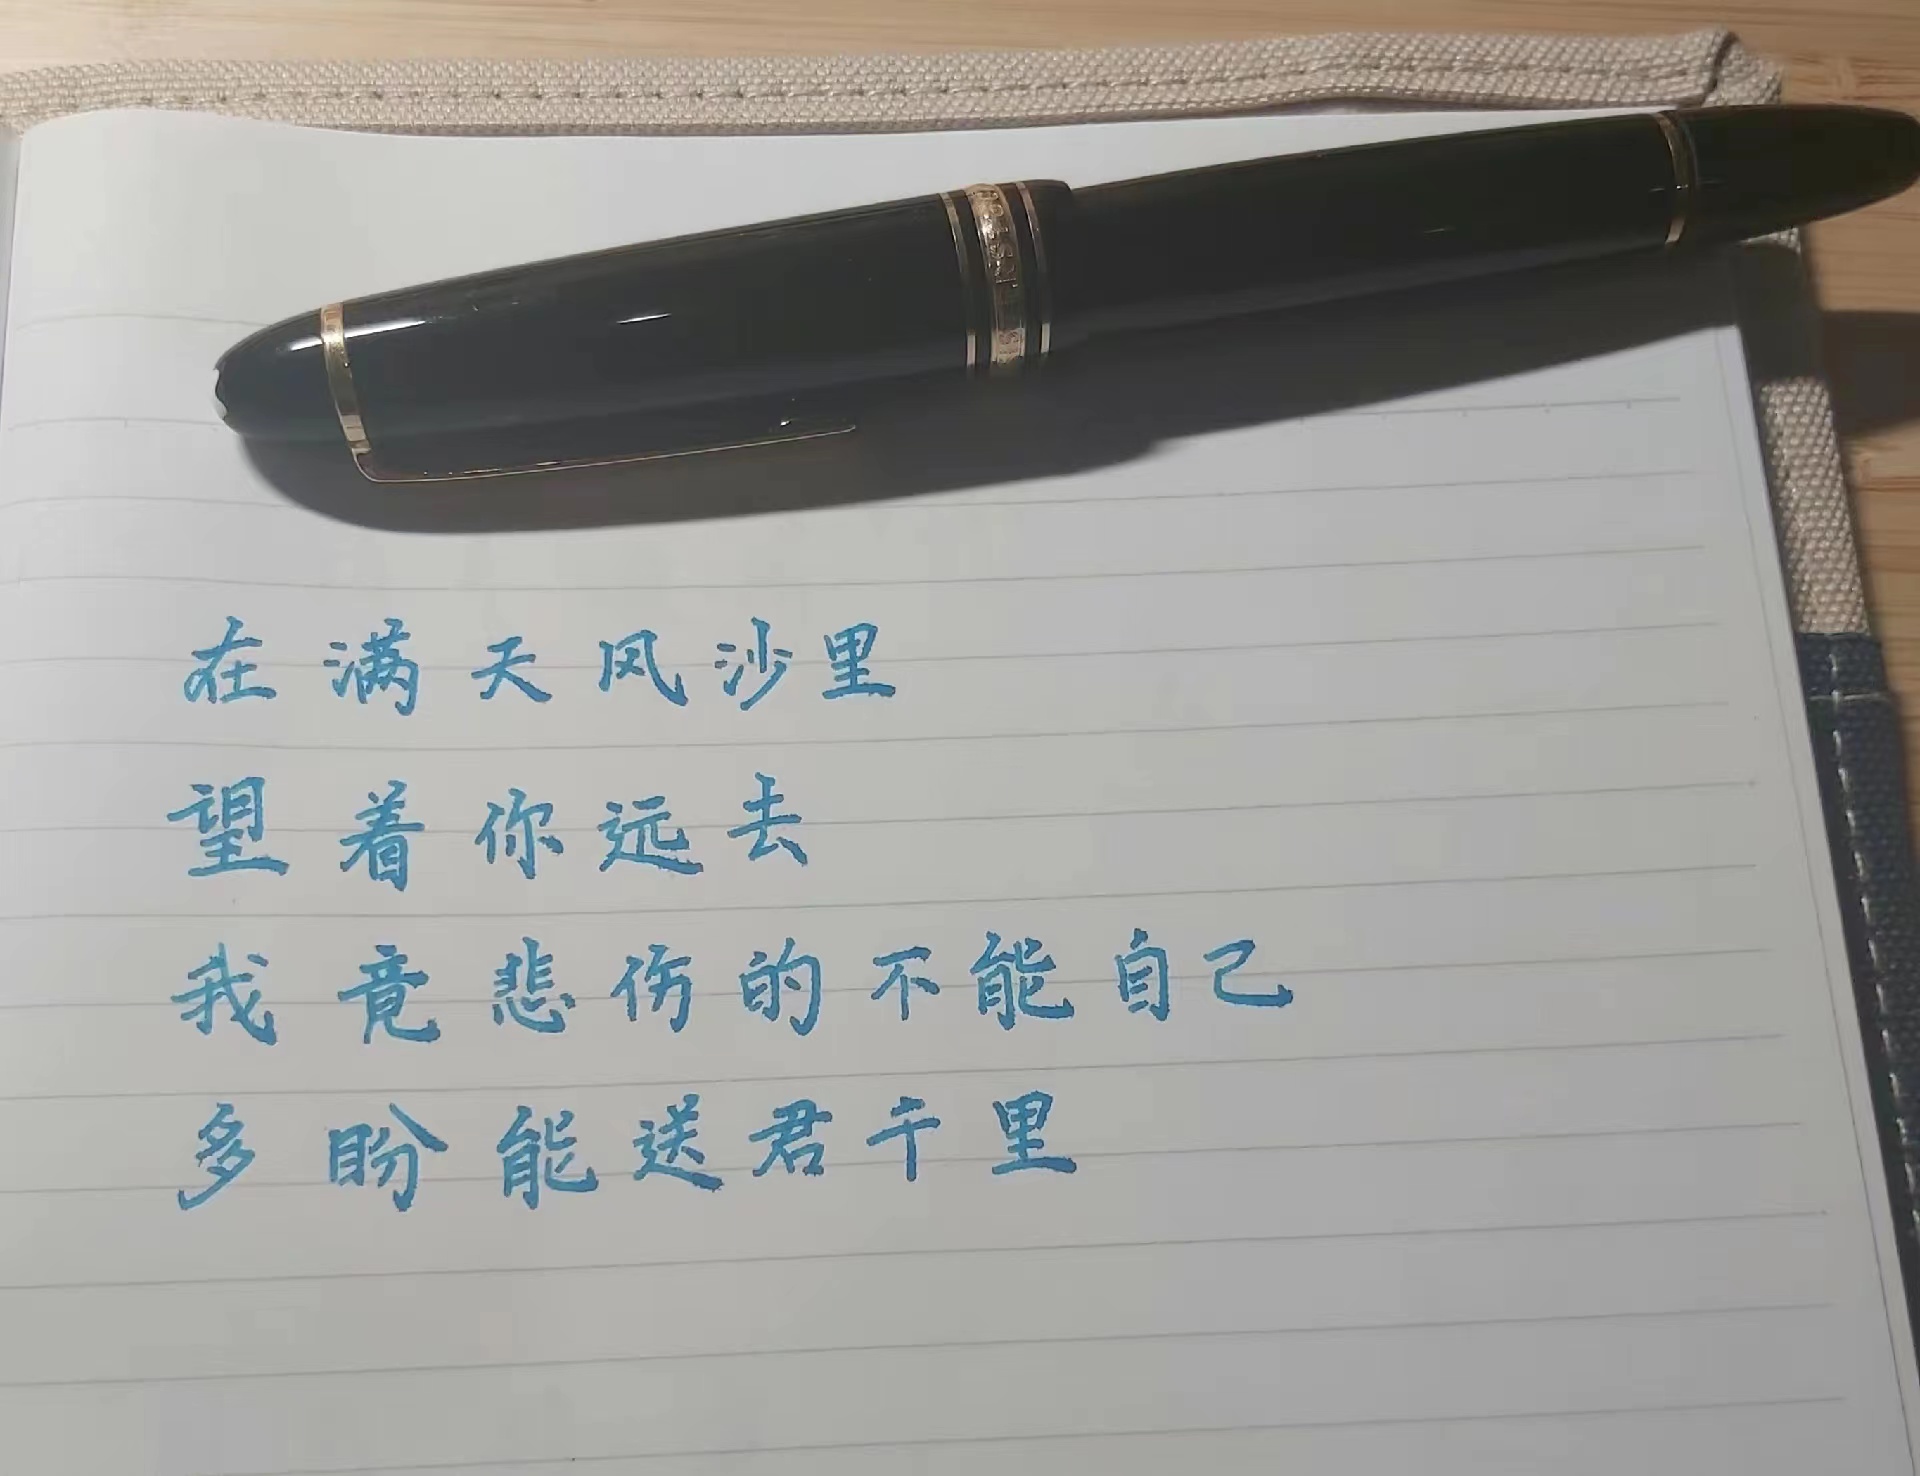 在满天风沙里
望着你远去
我竟悲伤的不能自己
多盼能送君千里